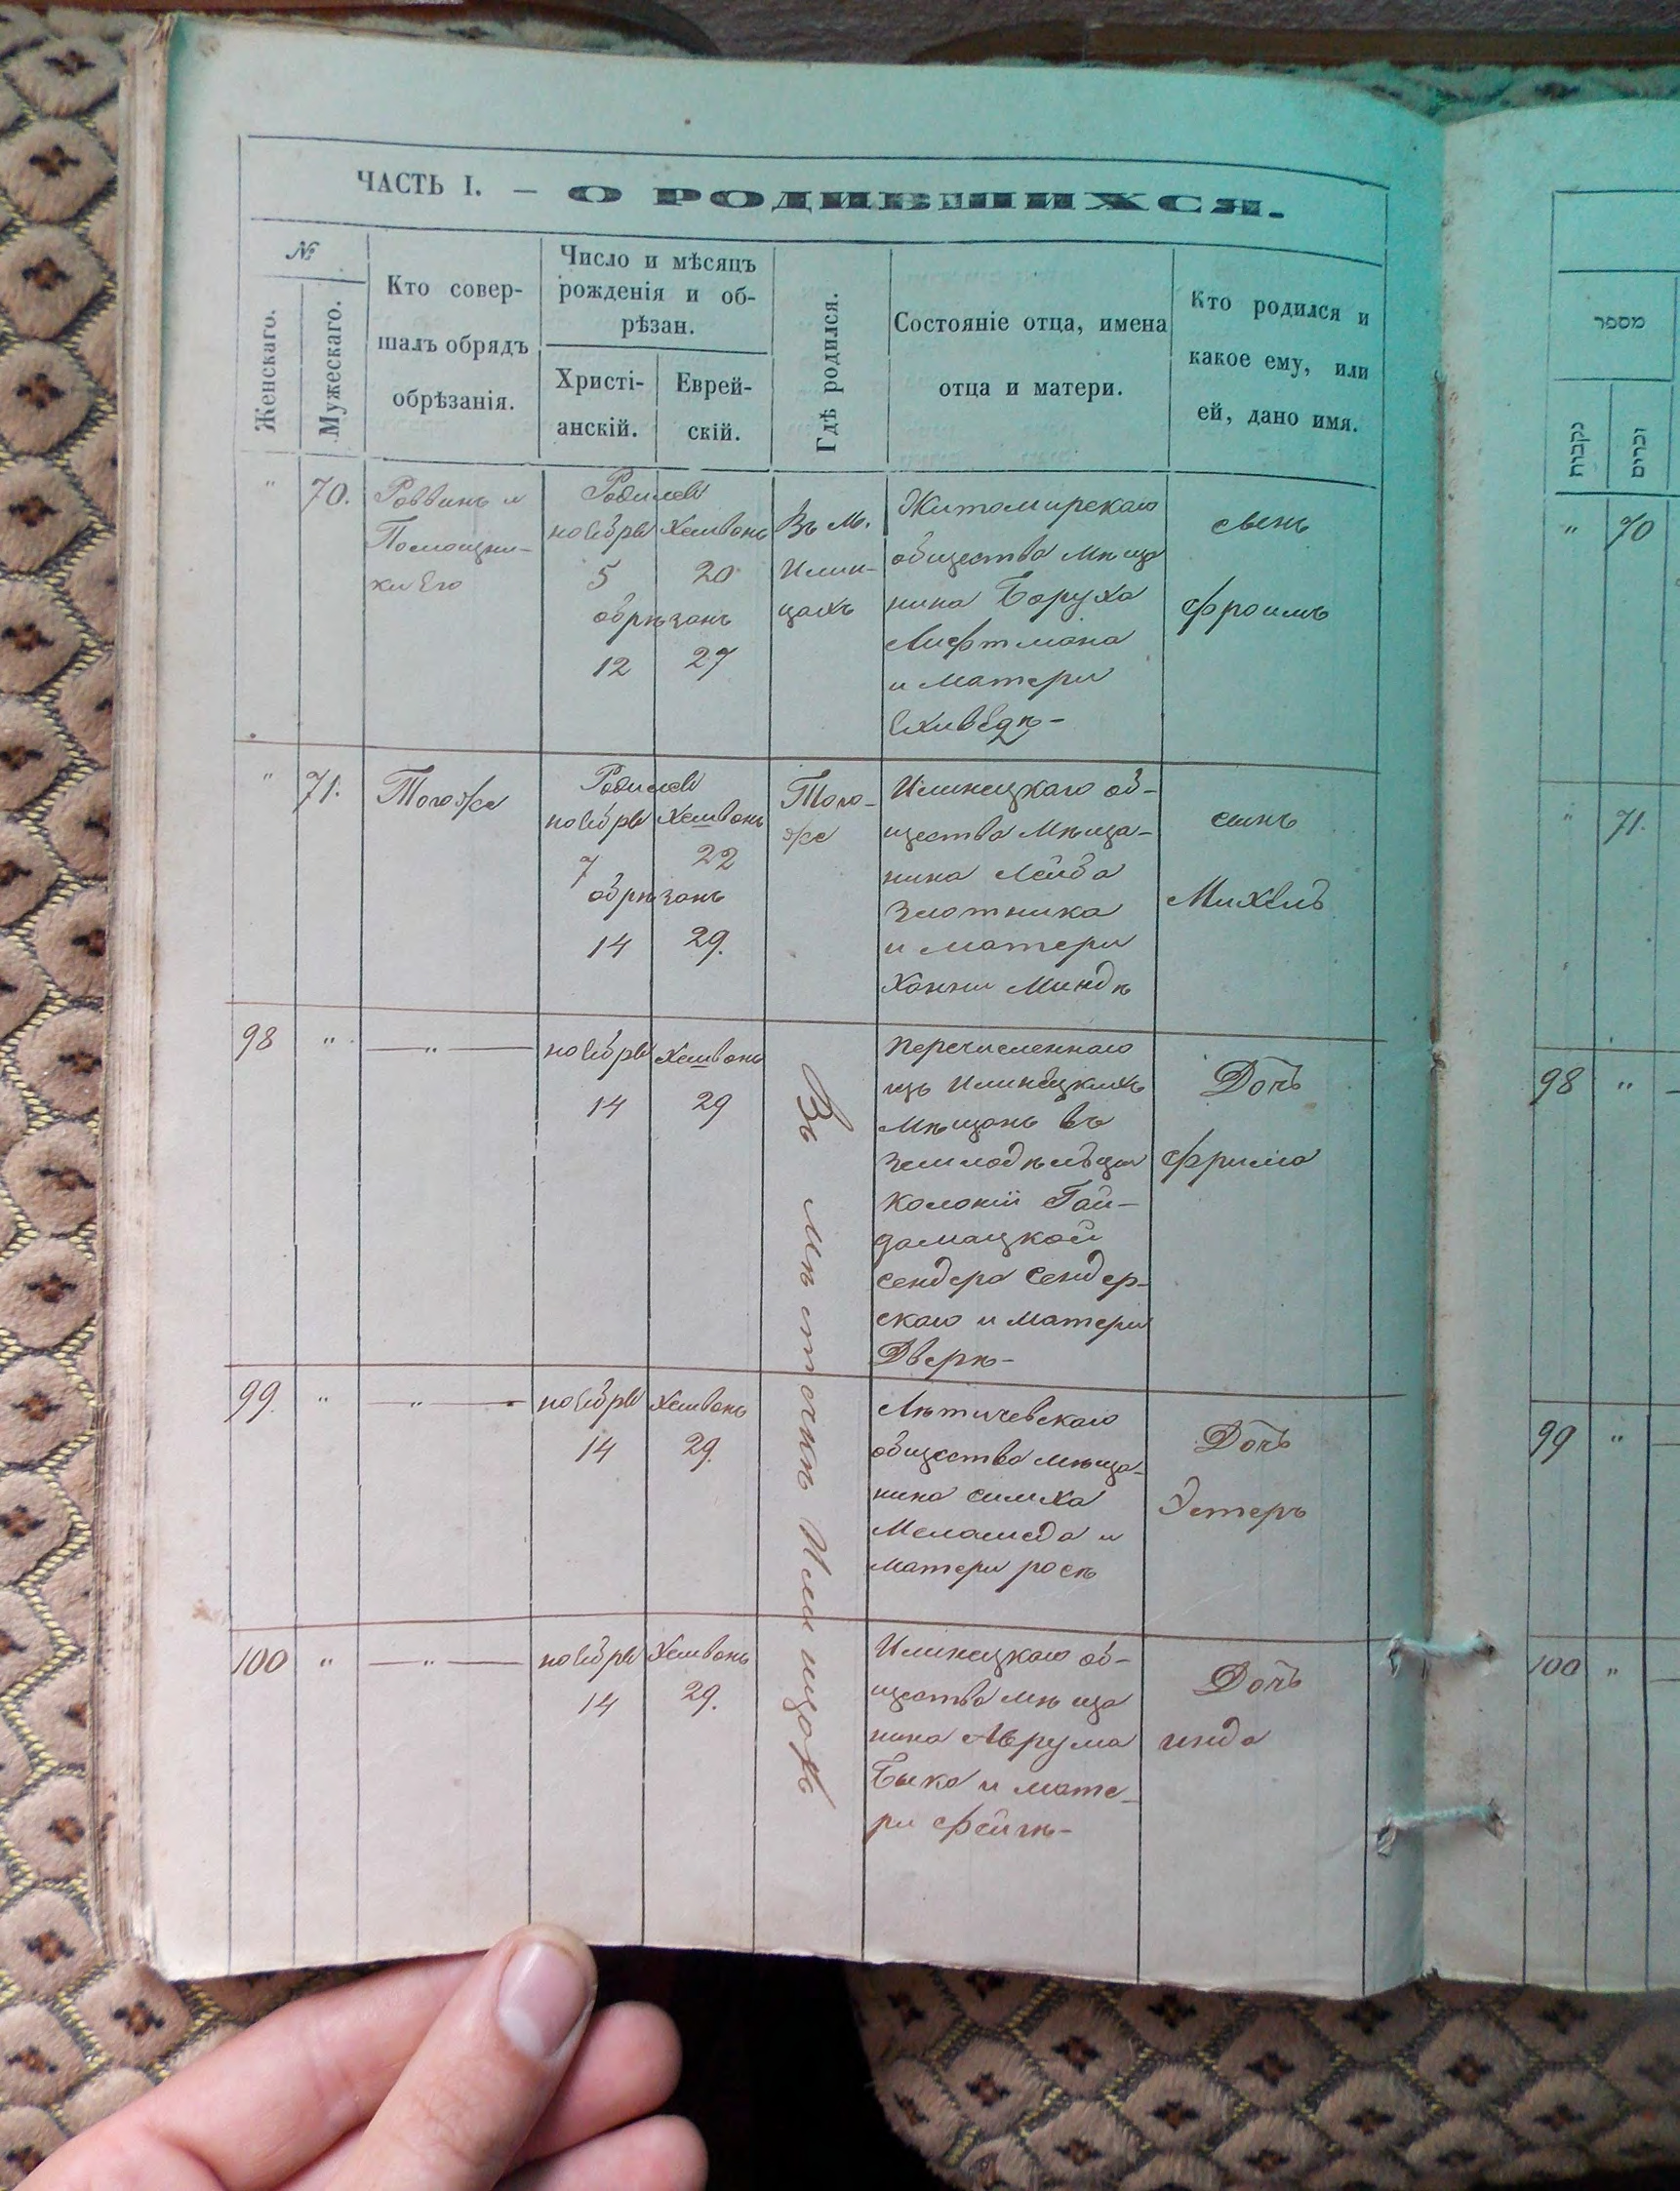 ЧАСТЬ I. — О РОДИВШИХСЯ.
№
Женскаго.
Мужескаго.
Кто совер-
шалъ обрядъ
обрѣзанія.
Число и мѣсяцъ
рожденія и об-
рѣзан.
Христі-
анскій.
Еврей-
скій.
Гдѣ родился.
Состояніе отца, имена
отца и матери.
Кто родился и
какое ему, или
ей, дано имя.
" 70.
Раввинъ и
Помощни-
ки Его
Родился
ноября Хешванъ
5 20
обрѣзанъ
12 27
Въ М.
Илин-
цахъ
Житомирскаго
общества мѣща
нина Боруха
Лифтмана
и матери
сынъ
Фроимъ
" 71.
Тогоже
Родился
ноября Хешванъ
7 22
обрѣзанъ
14 29.
Того-
же
Илинецкаго об-
щества мѣща-
нина Лейба
Злотника
и матери
Ханни Миндѣ
сынъ
Михель
98 " — " —
ноября Хешванъ
14 29
Въ мѣстечкѣ Илинцахъ
Перечисленнаго
изъ Илинецкихъ
мѣщанъ въ
земледѣльцы
колоніи Гай-
дамацкой
Сендера Сендер-
скаго и матери
Двернѣ-
Дочь
Фрима
99. " — " —
ноября Хешванъ
14 29.
Лѣтичевскаго
общества мѣща-
нина Симха
Меламеда и
матери росѣ
Дочь
Эстеръ
100 " — " —
ноября Хешванъ
14 29.
Илинецкаго об-
щества мѣща
нина Аврума
Быка и мате-
ри Фейгѣ-
Дочь
инда
מספר
נקבות
זכרים
" 70
" 71.
98 "
99 "
100 "